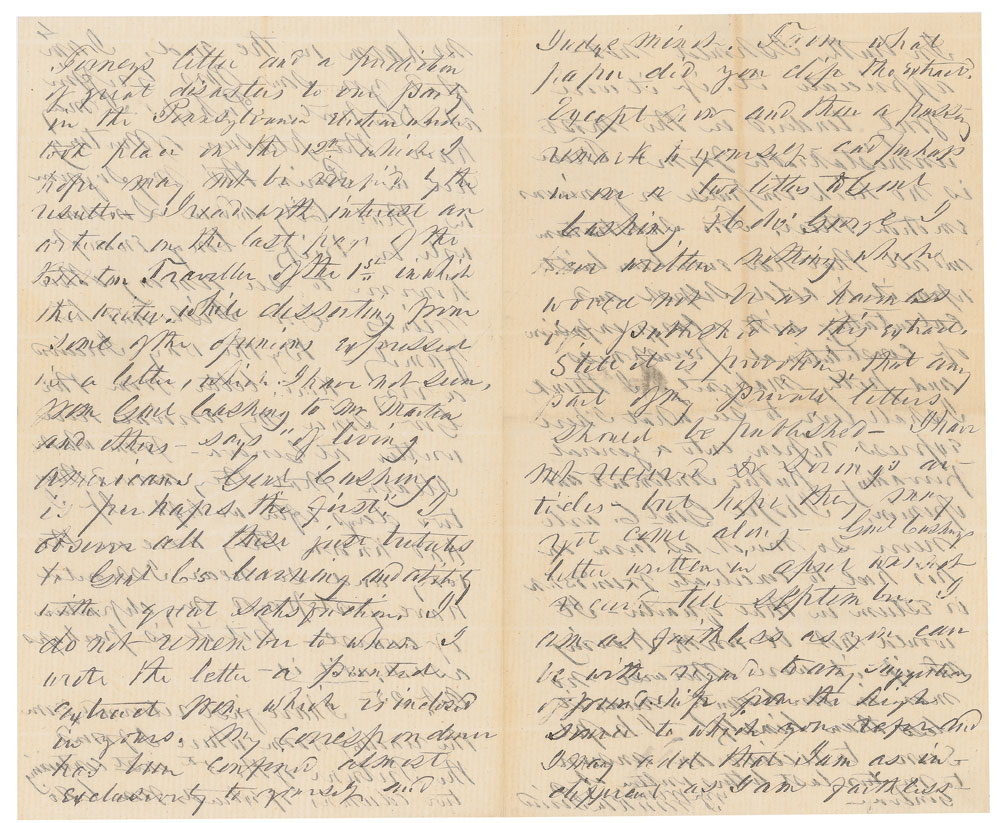 Forney's letter and a prediction
of great disasters to our party
in the Pennsylvania election which
took place on the 12th which I
hope may not be verified by the
result — I read with interest an
article in the last paper of the
Boston Traveller of the 1st in which
the writer, while dissenting from
some of the opinions expressed
in a letter, which I have not seen,
from Genl Cushing to Mr
and others — says "of living
Americans Genl Cushing
is perhaps the first". I
observe all these just tributes
to Genl C's learning and ability
with great satisfaction. I
do not remember to whom I
wrote the letter — a printed
extract from which is inclosed
in yours. My correspondence
has been confined almost
exclusively to yourself and
Judge Minot. From what
paper did you clip the extract.
Except now and then a passing
remark to yourself and perhaps
in one or two letters to Genl
Cushing & Col. George I
have written nothing which
would not be as harmless
if published as this extract.
Still it is provoking that any
part of my private letters
should be published — I have
not received Dr Loring's ar-
ticles — but hope they may
yet come along — Genl Cushing's
letter written in April was not
rec'd till September. I
am as faithless as you can
be with regard to any suggestions
of friendship from the high
source to which you refer and
I may add that I am as in-
different as I am faithless —